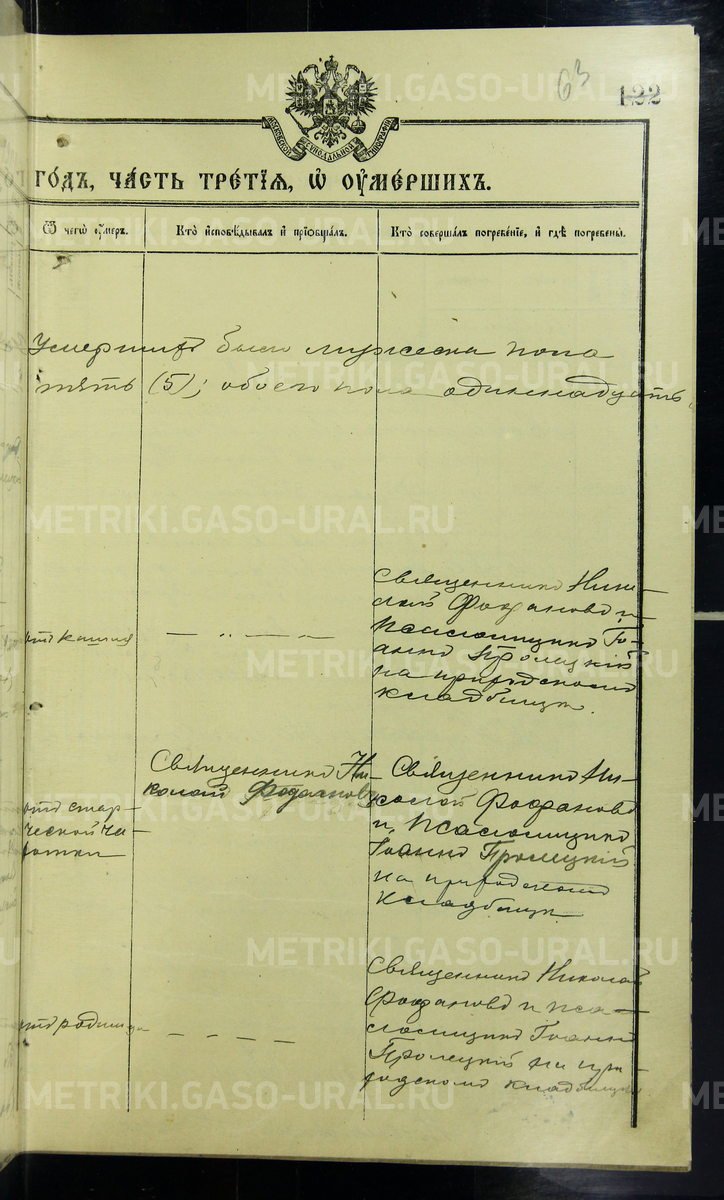 63
122
МОСКОВСКОЙ СѴНОДАЛЬНОЙ ТИПОГРАФІИ
го́дъ, ча́сть тре́тїѧ, ѡ҆ оу҆ме́ршихъ.
Ѿ чегѡ̀ оу҆́меръ.
Кто̀ и҆сповѣ́дывалъ и҆ прїѻбща́лъ.
Кто̀ соверша́лъ погребе́нїе, и҆ гдѣ̀ погребены̀.
Умершихъ было мужеска пола
пять (5); обоего пола одиннадцать
отъ кашля
— „ — —
Священникъ Нико-
лай Фофановъ и
псаломщикъ Іо-
аннъ Пролецкій
на приходскомъ
кладбищѣ.
отъ стар-
ческой ча-
хотки
Священникъ Ни-
колай Фофановъ
Священникъ Ни-
колай Фофановъ
и псаломщикъ
Іоаннъ Пролецкій
на приходскомъ
кладбищѣ
отъ родимца
— — — —
Священникъ Николай
Фофановъ и пса-
ломщикъ Іоаннъ
Пролецкій на при-
ходскомъ кладбищѣ
METRIKI.GASO-URAL.RU